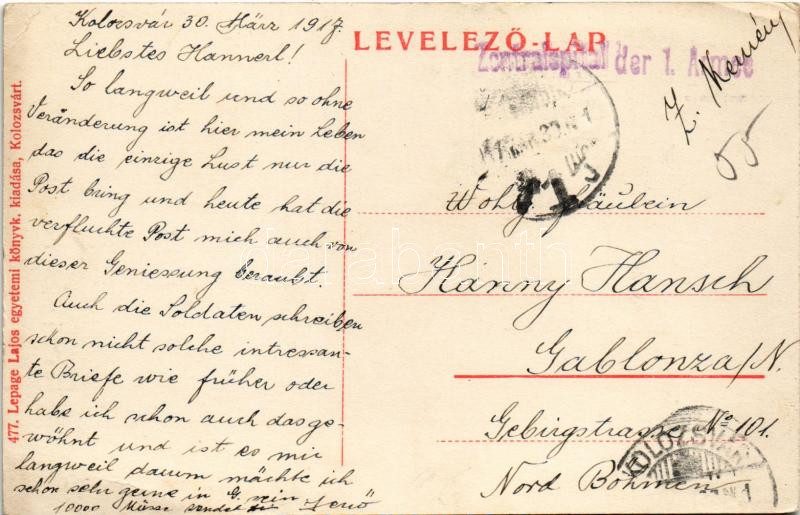 Kolozsvár 30. März 1917.
Liebstes Hannerl!
So langweil und so ohne
Veränderung ist hier mein Leben
das die einzige Lust nur die
Post bring und heute hat die
verfluchte Post mich auch von
dieser Geniessung beraubt.
Auch die Soldaten schreiben
schon nicht solche intressan-
te Briefe wie früher oder
habe ich schon auch das ge-
wöhnt und ist es mir
langweil darum möchte ich
schon sehr gerne in G. sein
10000 Küsse sendet Jenö
LEVELEZŐ-LAP
Zentralspital der 1. Armee
Z. Kemény
Wohlg. Fräulein
Hanny Hansch
Gablonza/N.
Gebirgstrasse No 101.
Nord Böhmen
KOLOZSVÁR
477. Lepage Lajos egyetemi könyvk. kiadása, Kolozsvárt.
darabanth